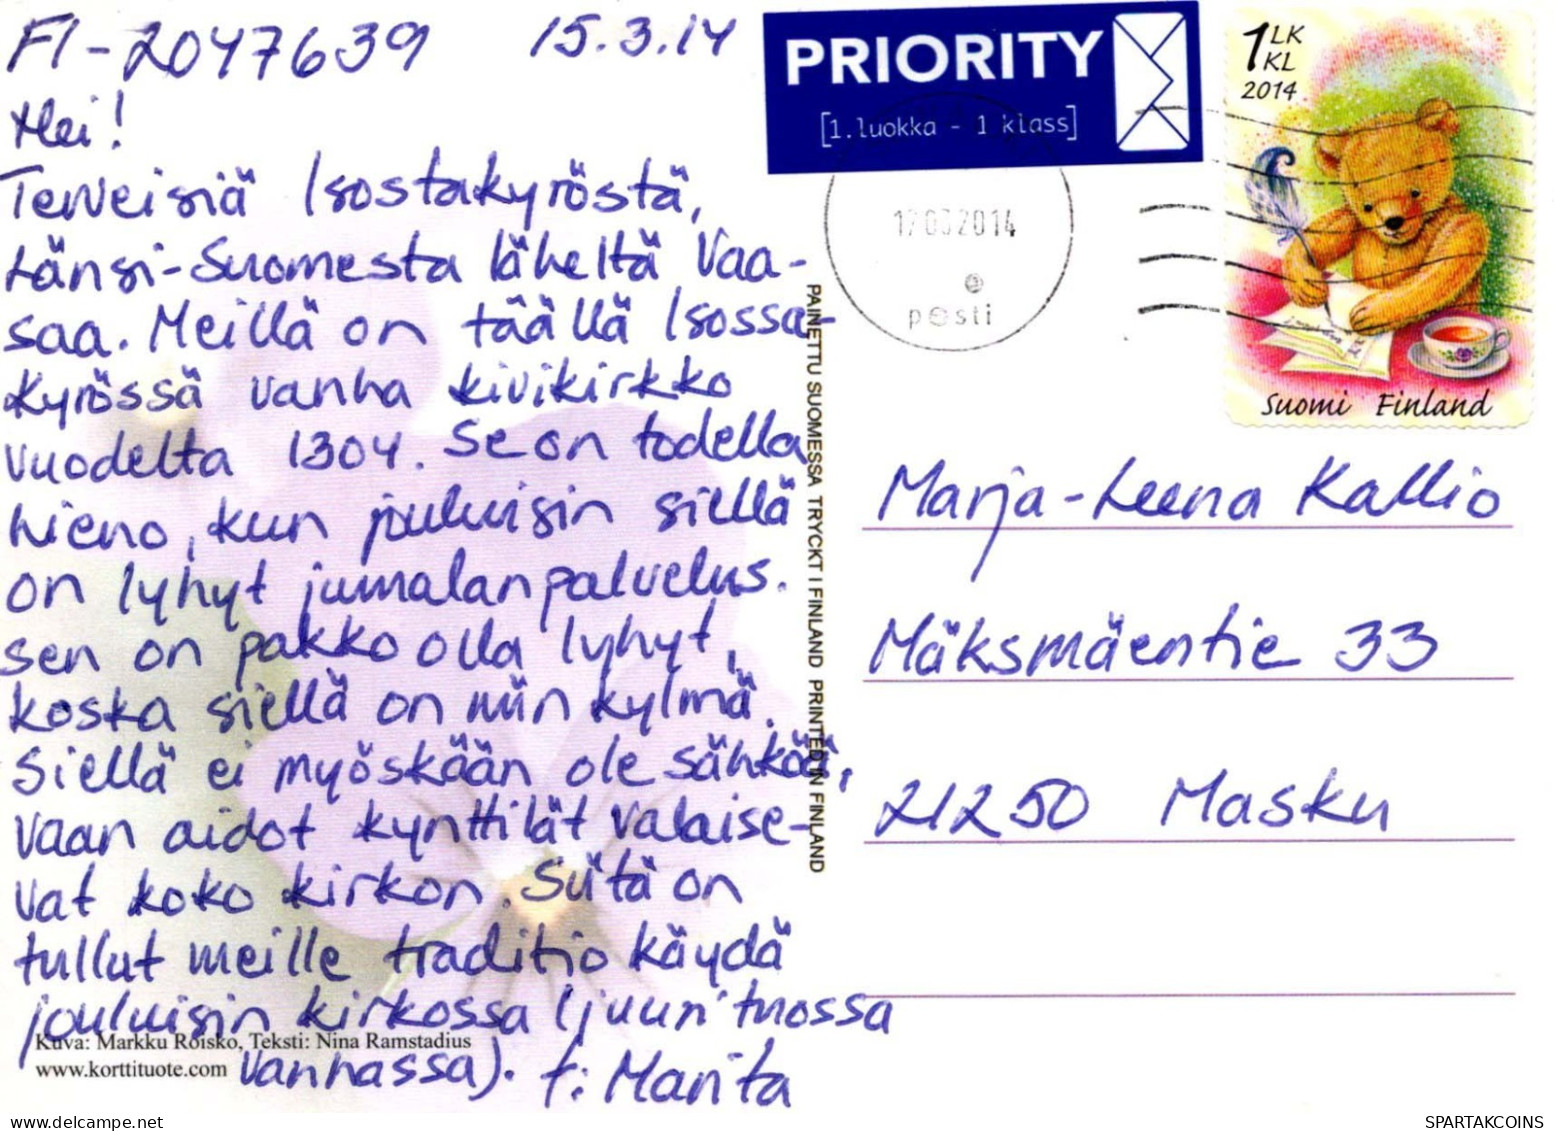 FI-2047639 15.3.14
Hei!
Terveisiä Isostakyröstä,
Länsi-Suomesta läheltä Vaa-
saa. Meillä on täällä Isossa-
Kyrössä vanha kivikirkko
vuodelta 1304. Se on todella
hieno, kun jouluisin siellä
on lyhyt jumalanpalvelus.
Sen on pakko olla lyhyt,
koska siellä on niin kylmä.
Siellä ei myöskään ole sähköä,
vaan aidot kynttilät valaise-
vat koko kirkon. Siitä on
tullut meille traditio käydä
jouluisin kirkossa (juuri tuossa
vanhassa). t: Marita
Kuva: Markku Roisko, Teksti: Nina Ramstadius
www.korttituote.com
PAINETTU SUOMESSA TRYCKT I FINLAND PRINTED IN FINLAND
PRIORITY
[1.luokka - 1 klass]
17032014
posti
1 LK
KL
2014
Suomi Finland
Marja-Leena Kallio
Mäksmäentie 33
21250 Masku
SPARTAKCOINS